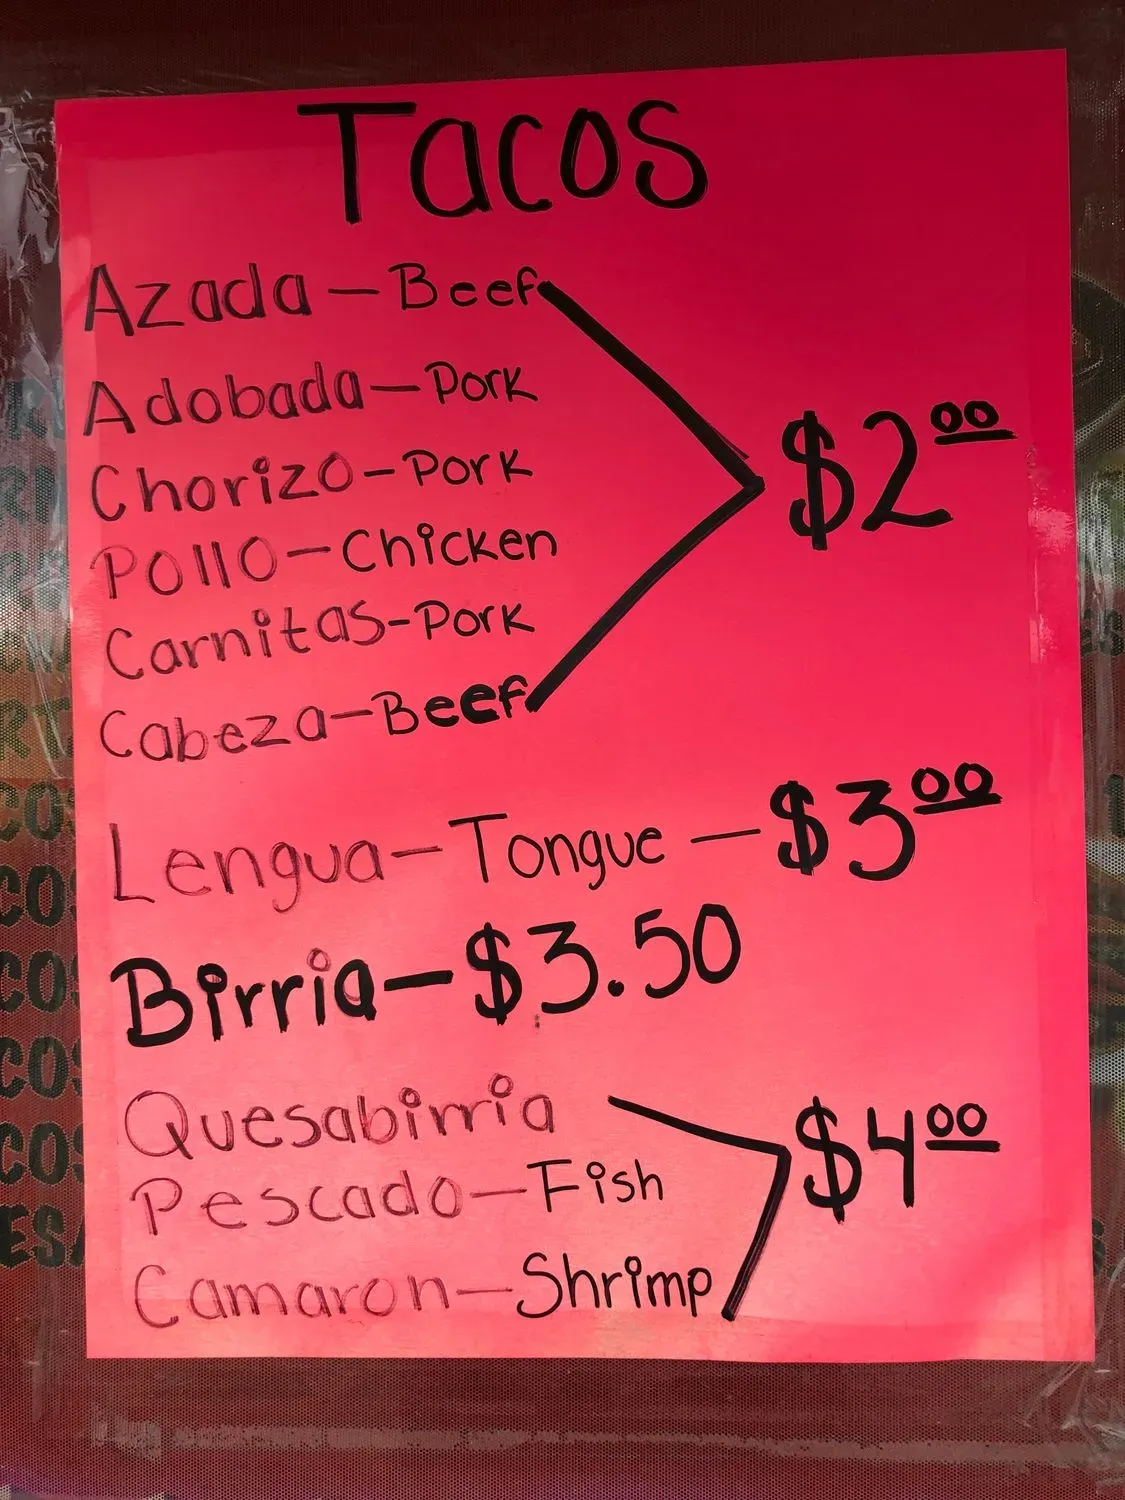 Tacos
Azada - Beef
Adobada - Pork
Chorizo - Pork
$2.00
Pollo - Chicken
Carnitas - Pork
Cabeza - Beef
Lengua - Tongue - $3.00
Birria - $3.50
Quesabirria
Pescado - Fish
$4.00
Camaron - Shrimp